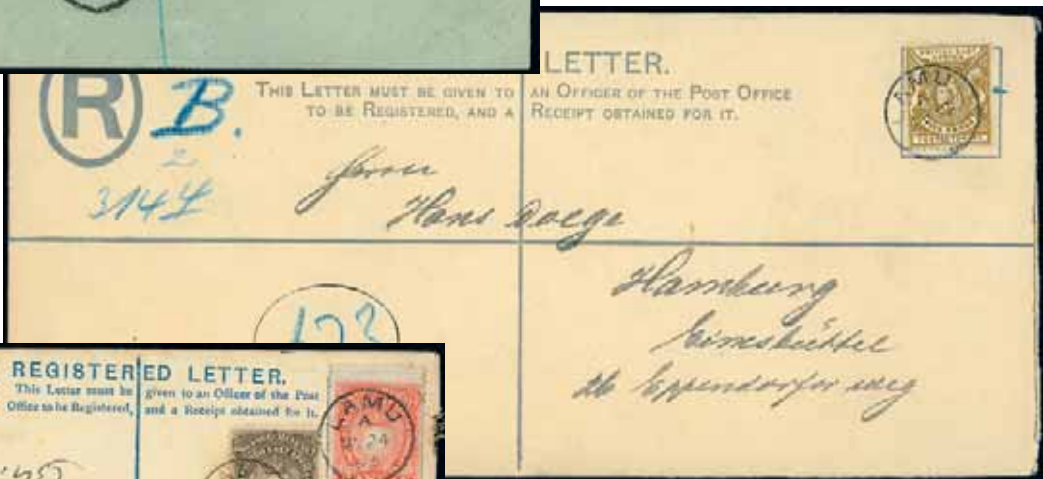 LETTER.
R B. THIS LETTER MUST BE GIVEN TO AN OFFICER OF THE POST OFFICE
TO BE REGISTERED, AND A RECEIPT OBTAINED FOR IT.
LAMU
Herrn
Hans Doege
Hamburg
Eimsbüttel
Eppendorfer weg
REGISTERED LETTER.
This Letter must be given to an Officer of the Post
Office to be Registered, and a Receipt obtained for it.
LAMU
A
24